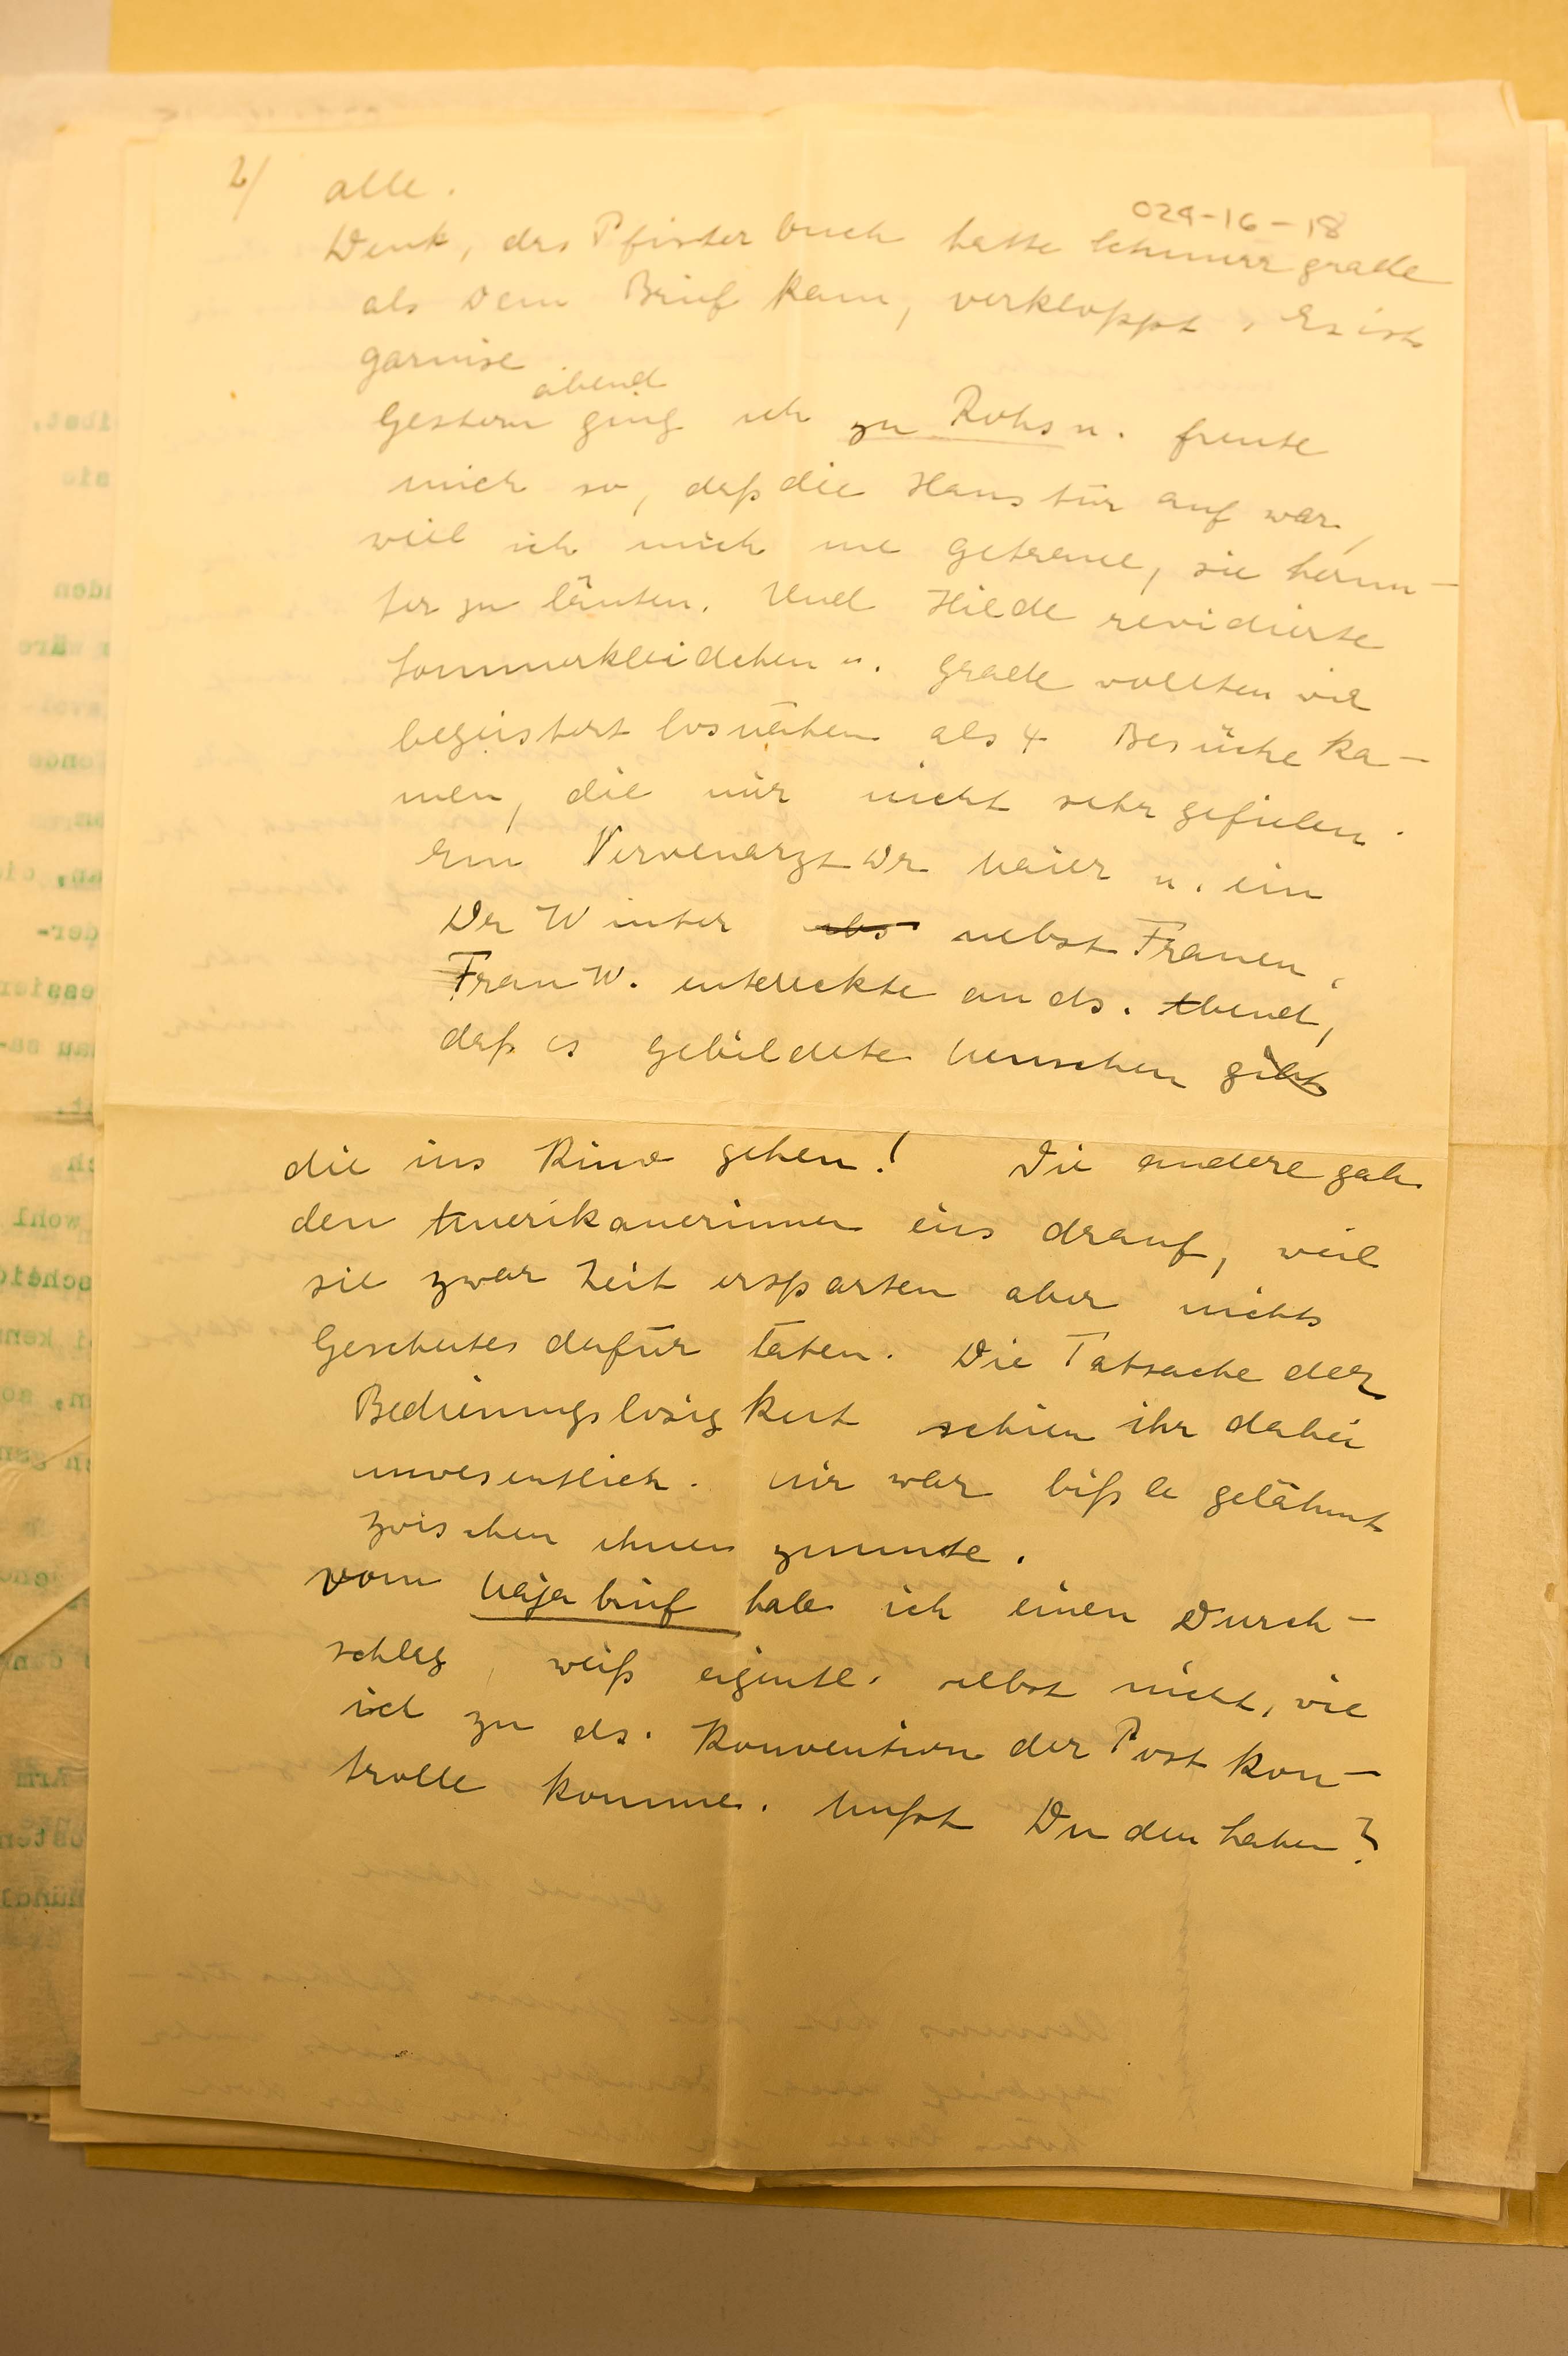 2/ alle.
029-16-18
Denk, das Pfister buch hatte Schnurr grade
als Dein Brief kam, verkloppt. Es ist
garnise
abend
Gestern ging ich zu Rohs u. freute
mich so, daß die Haustür auf war,
weil ich mich nie getraue, sie herun-
ter zu läuten. Und Hilde revidierte
Sommerkleidchen u. grade wollten wir
begeistert losnähen als 4 Besüche ka-
men, die mir nicht sehr gefielen.
Ein Nervenarzt Dr Maier u. ein
Dr Winter nebst Frauen.
Frau W. entdeckte an ds. Abend,
daß es gebildete Menschen gibt
die ins Kino gehen! Die andere gab
den Amerikanerinnen eins drauf, weil
sie zwar Zeit ersparten aber nichts
Gescheutes dafür täten. Die Tatsache der
Bedienungslosigkeit schien ihr dabei
unwesentlich. Mir war bißle gelähmt
zwischen ihnen zumute.
Vom Majabrief habe ich einen Durch-
schlag, weiß eigentl. selbst nicht, wie
ich zu ds. Konvention der Post kon-
trolle komme. Mußt Du den haben?